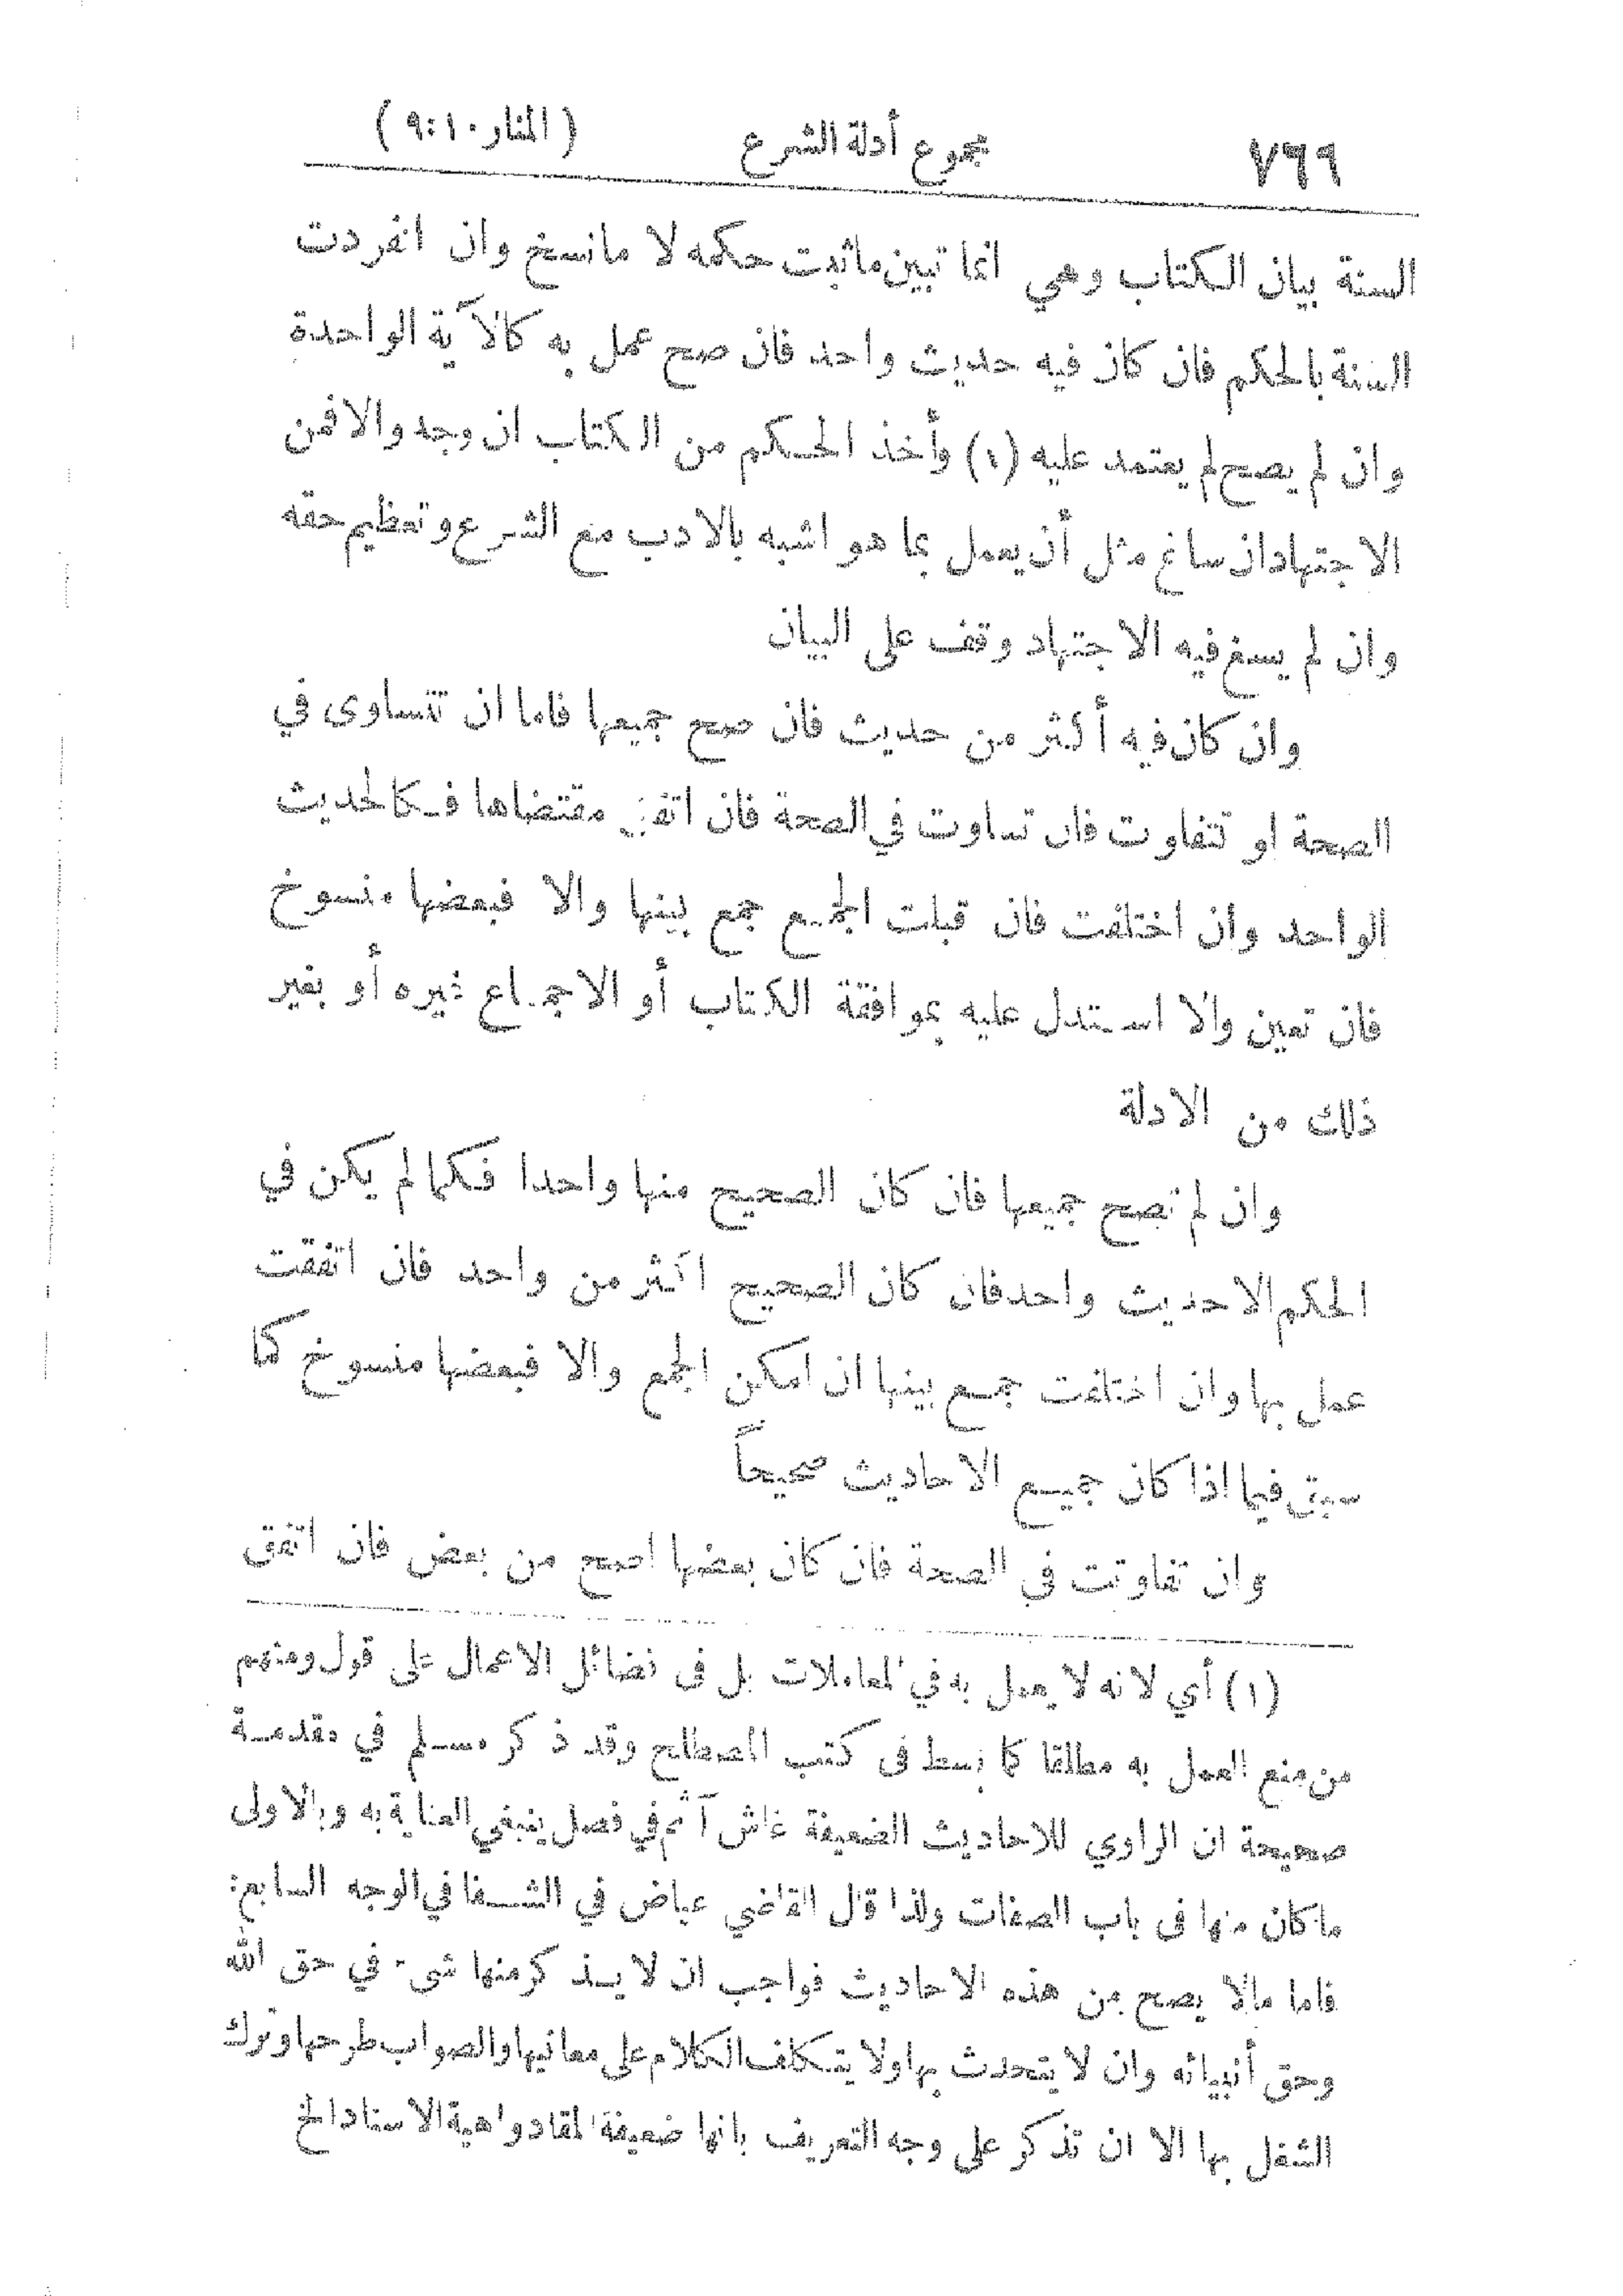 ٧٦٩ مجموع أدلة الشرع (المنار ١٠:٩)
السنة بيان الكتاب وهي انما تبين ماثبت حكمه لا مانسخ وان انفردت
السنة بالحكم فان كان فيه حديث واحد فان صح عمل به كالآية الواحدة
وان لم يصح لم يعتمد عليه (١) وأخذ الحكم من الكتاب ان وجد والا فمن
الاجتهاد ان ساغ مثل أن يعمل بما هو اشبه بالادب مع الشرع وتعظيم حقه
وان لم يسغ فيه الاجتهاد وقف على البيان
وان كان فيه أكثر من حديث فان صح جميعها فاما ان تتساوى في
الصحة او تتفاوت فان تساوت في الصحة فان اتفق مقتضاها فكالحديث
الواحد وان اختلفت فان قبلت الجمع جمع بينها والا فبعضها منسوخ
فان تعين والا استدل عليه بموافقة الكتاب أو الاجماع غيره أو بغير
ذلك من الادلة
وان لم تصح جميعها فان كان الصحيح منها واحدا فكما لم يكن في
الحكم الا حديث واحد فان كان الصحيح اكثر من واحد فان اتفقت
عمل بها وان اختلفت جمع بينها ان امكن الجمع والا فبعضها منسوخ كما
سبق فيما اذا كان جميع الاحاديث صحيحاً
وان تفاوتت في الصحة فان كان بعضها اصح من بعض فان اتفق
(١) أي لانه لا يعمل به في المعاملات بل في فضائل الاعمال على قول ومنهم
من منع العمل به مطلقا كما بسط في كتب المصطلح وقد ذكر مسلم في مقدمة
صحيحة ان الراوي للاحاديث الضعيفة غاش آثم في فصل ينبغي العناية به وبالاولى
ما كان منها في باب الصفات ولذا قال القاضي عياض في الشفا في الوجه السابع:
فاما مالا يصح من هذه الاحاديث فواجب ان لا يذكر منها شيء في حق الله
وحق أنبيائه وان لا يتحدث بها ولا يتكلف الكلام على معانيها والصواب طرحها وترك
الشغل بها الا ان تذكر على وجه التعريف بانها ضعيفة المقاد واهية الاسناد الخ